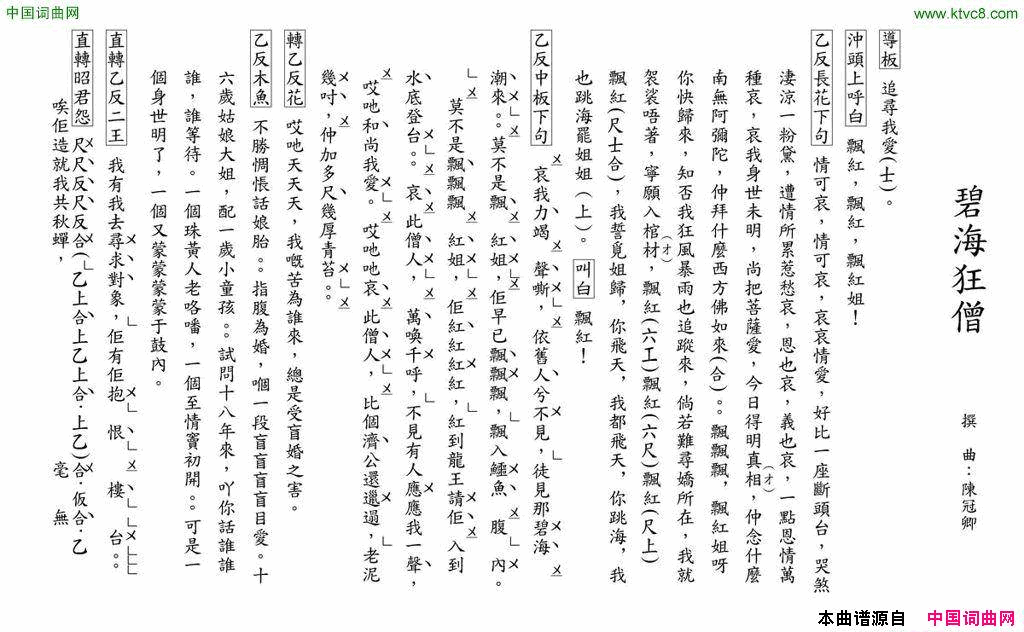 中国词曲网
www.ktvc8.com
碧海狂僧
撰 曲：陳冠卿
導板 追尋我愛(士)。
沖頭上呼白 飄紅，飄紅，飄紅姐！
乙反長花下句 情可哀，情可哀，哀哀情愛，好比一座斷頭台，哭煞
淒涼一粉黛，遭情所累惹愁哀，恩也哀，義也哀，一點恩情萬
種哀，哀我身世未明，尚把菩薩愛，今日得明真相，(才)仲念什麼
南無阿彌陀，仲拜什麼西方佛如來(合)。。飄飄飄，飄紅姐呀
你快歸來，知否我狂風暴雨也追蹤來，倘若難尋嬌所在，我就
袈裟唔著，寧願入棺材，(才)飄紅(六工)飄紅(六尺)飄紅(尺上)
飄紅(尺士合)，我誓覓姐歸，你飛天，我都飛天，你跳海，我
也跳海罷姐姐(上)。 叫白 飄紅！
乙反中板下句 哀我力竭 聲嘶，依舊人兮不見，徒見那碧海
潮來。。莫不是飄 紅姐，佢早已飄飄飄，飄入鱷魚 腹 內。
莫不是飄飄飄 紅姐，佢紅紅紅，紅到龍王請佢 入到
水底登台。。哀 此僧人， 萬喚千呼，不見有人應應我一聲，
哎吔和尚我愛。哎吔吔哀 此僧人，比個濟公還邋遢，老泥
幾吋，仲加多尺幾厚青苔。。
轉乙反花 哎吔天天天，我嘅苦為誰來，總是受盲婚之害。
乙反木魚 不勝惆悵話娘胎。。指腹為婚，嗰一段盲盲盲盲目愛。十
六歲姑娘大姐，配一歲小童孩。。試問十八年來，吖你話誰誰
誰，誰等待。一個珠黃人老咯噃，一個至情竇初開。。可是一
個身世明了，一個又蒙蒙蒙蒙于鼓內。
直轉乙反二王 我有我去尋求對象，佢有佢抱 恨 樓 台。。
直轉昭君怨 尺尺反尺反合(乙上合上乙上乙上合．上乙)合．仮合．乙
唉佢造就我共秋蟬， 毫 無
本曲谱源自 中国词曲网